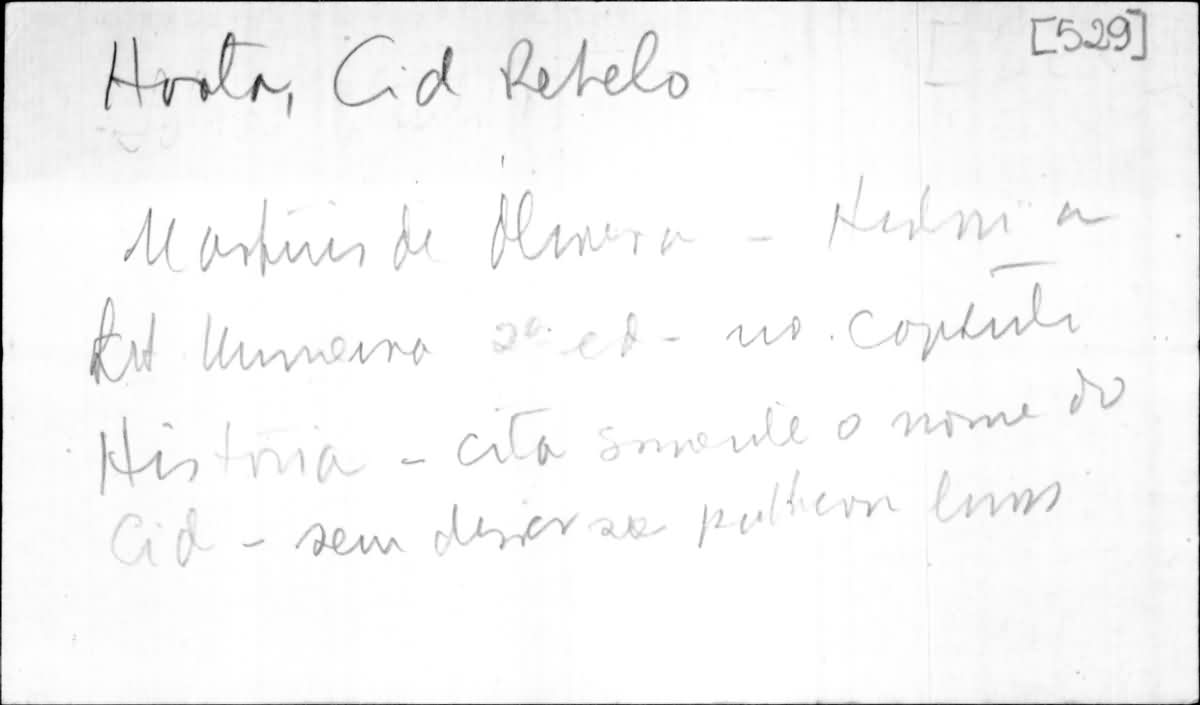 [529]
Horta, Cid Rebelo
Martins de Oliveira - História
Lit Mineira 2ª ed - no capítulo
História - cita somente o nome do
Cid - sem dizer se publicou livros